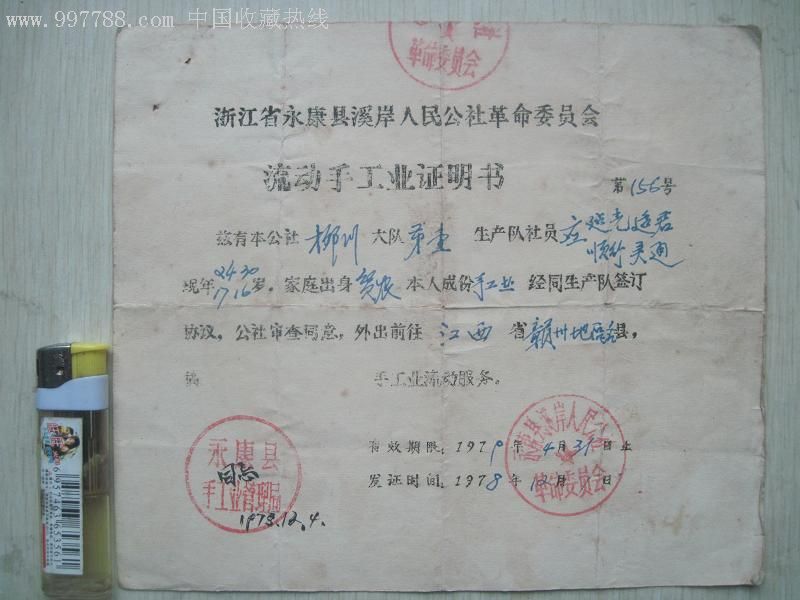 www.997788.com 中国收藏热线
革命委员会
浙江省永康县溪岸人民公社革命委员会
流动手工业证明书
第156号
兹有本公社柳川大队第壹生产队社员
现年24 30
17 16岁。家庭出身贫农本人成份手工业 经同生产队签订
协议，公社审查同意，外出前往江西省赣州地区各县，
搞 手工业流动服务。
有效期限：1979年4月31日止
发证时间：1978年12月 日
永康县
手工业管理局
同意
1978.12.4.
永康县溪岸人民公社
革命委员会